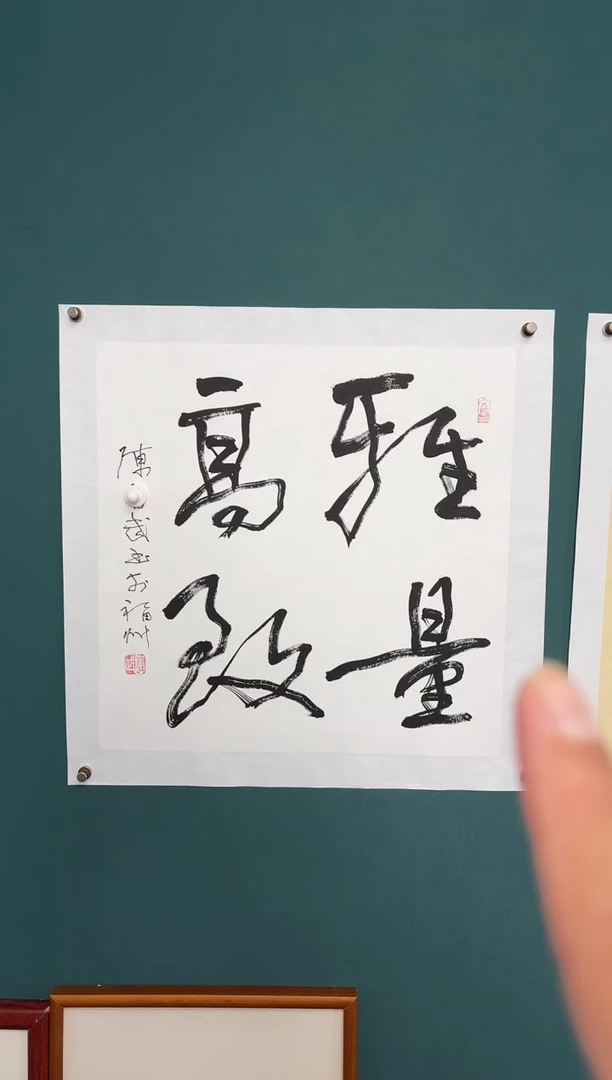 雅量
高致
陳武書於福州